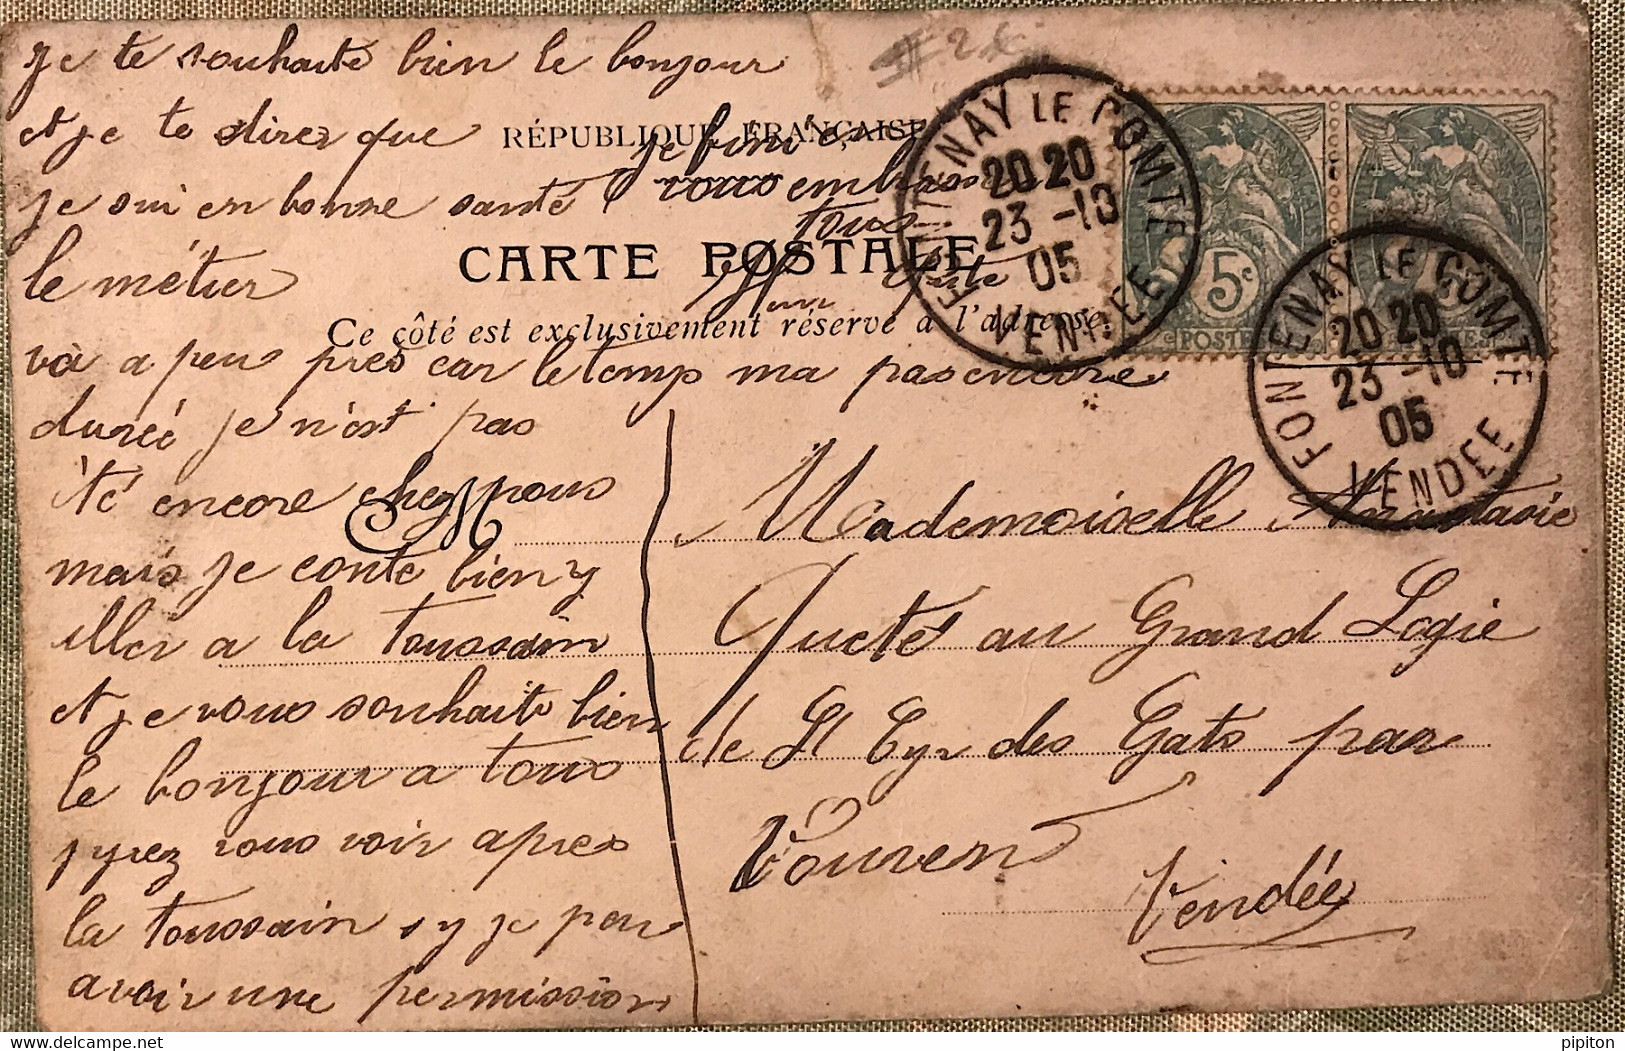 je te souhaite bien le bonjour
et je te direz que
je sui en bonne santé
le métier
va a peu pres car le temp ma pas encore
durée je n'est pas
été encore chez nous
mais je conte bien y
aller a la toussain
et je vous souhaite bien
le bonjour a tous
j'yrez vous voir apres
la toussain s y je peu
avoir une permission
je fini
vous embrasse
tous
RÉPUBLIQUE FRANÇAISE
CARTE POSTALE
Ce côté est exclusivement réservé à l'adresse
M
FONTENAY LE COMTE
20 20
23 -10
05
VENDEE
5c
POSTES
FONTENAY LE COMTE
20 20
23 -10
05
VENDEE
Mademoiselle Anastasie
au Grand Logie
de St Cyr des Gats par
Vouven
Vendée
delcampe.net
pipiton